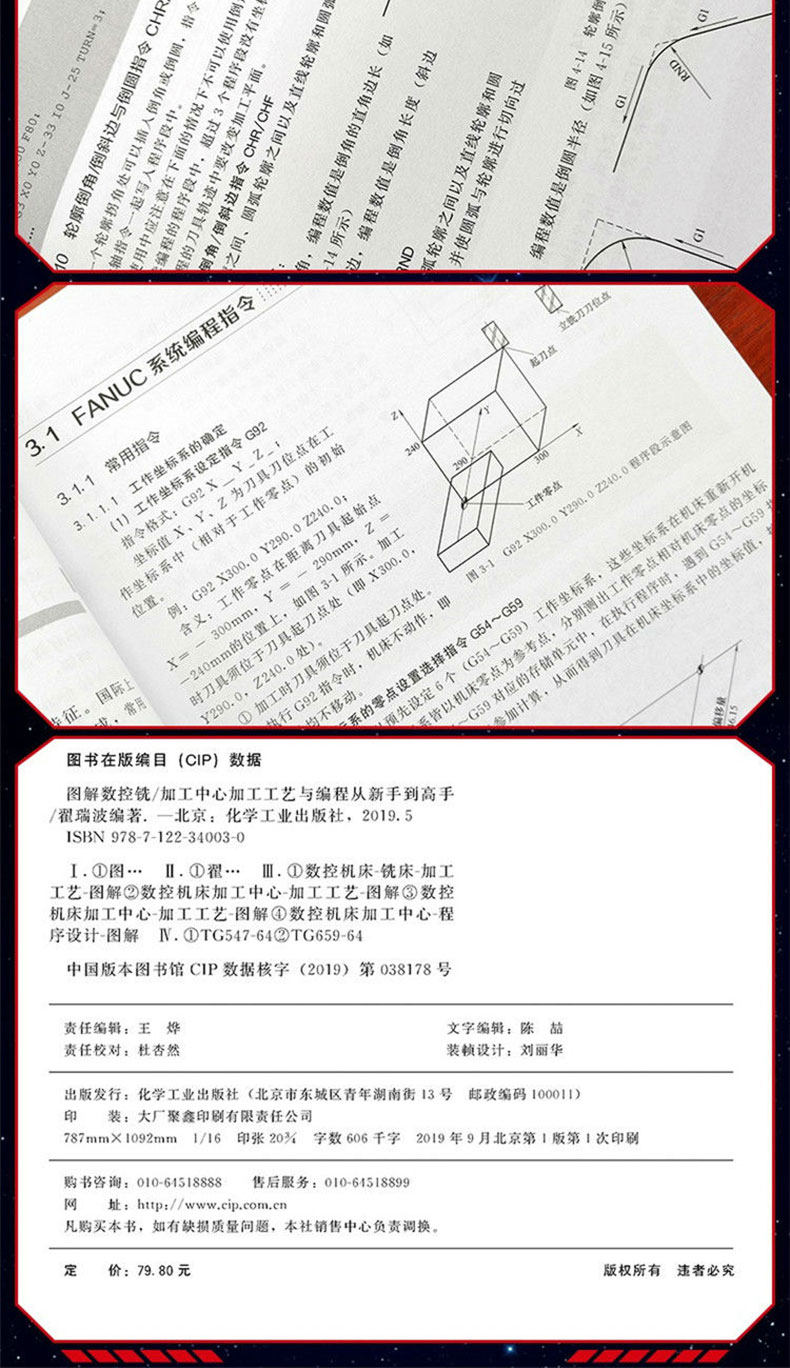 G3 X0 Y0 Z-33 I0 J-25 TURN=3;
轮廓倒角/倒斜边与倒圆指令
角/倒斜边指令 CHR/CHF
角，编程数值是倒角的直角边长（如
边，编程数值是倒角长度（斜边
RND
弧轮廓之间以及直线轮廓和圆
并使圆弧与轮廓进行切向过
编程数值是倒圆半径（如图 4-15 所示）
图 4-14
G1
RND
G1
G1
3.1 FANUC 系统编程指令
3.1.1 常用指令
3.1.1.1 工作坐标系的确定
(1) 工作坐标系设定指令 G92
指令格式：G92 X＿Y＿Z＿;
坐标值 X、Y、Z 为刀具刀位点在工
作坐标系中（相对于工作零点）的初始
位置。
例：G92 X300.0 Y290.0 Z240.0;
含义：工作零点在距离刀具起始点
X＝－300mm，Y＝－290mm，Z＝
－240mm的位置上，如图 3-1 所示。加工
时刀具须位于刀具起刀点处（即 X300.0，
Y290.0，Z240.0 处）。
① 加工时刀具须位于刀具起刀点处。
执行 G92 指令时，机床不动作，即
均不移动。
系的零点设置选择指令 G54～G59
预先设定 6 个（G54～G59）工作坐标系，这些坐标系在机床重新开机
系皆以机床零点为参考点，分别测出工作零点相对机床零点的坐标
G59 对应的存储单元中，在执行程序时，遇到 G54～G59
参加计算，从而得到刀具在机床坐标系中的坐标值，
立铣刀刀位点
起刀点
Z
Y
X
240
290
300
工件零点
图 3-1 G92 X300.0 Y290.0 Z240.0 程序段示意图
图书在版编目（CIP）数据
图解数控铣/加工中心加工工艺与编程从新手到高手
/翟瑞波编著. —北京：化学工业出版社，2019.5
ISBN 978-7-122-34003-0
Ⅰ.①图… Ⅱ.①翟… Ⅲ.①数控机床-铣床-加工
工艺-图解②数控机床加工中心-加工工艺-图解③数控
机床加工中心-加工工艺-图解④数控机床加工中心-程
序设计-图解 Ⅳ.①TG547-64②TG659-64
中国版本图书馆 CIP 数据核字（2019）第 038178 号
责任编辑：王 烨 文字编辑：陈 喆
责任校对：杜杏然 装帧设计：刘丽华
出版发行：化学工业出版社（北京市东城区青年湖南街 13 号 邮政编码 100011）
印 装：大厂聚鑫印刷有限责任公司
787mm×1092mm 1/16 印张 20¾ 字数 606 千字 2019 年 9 月北京第 1 版第 1 次印刷
购书咨询：010-64518888 售后服务：010-64518899
网 址：http://www.cip.com.cn
凡购买本书，如有缺损质量问题，本社销售中心负责调换。
定 价：79.80 元 版权所有 违者必究